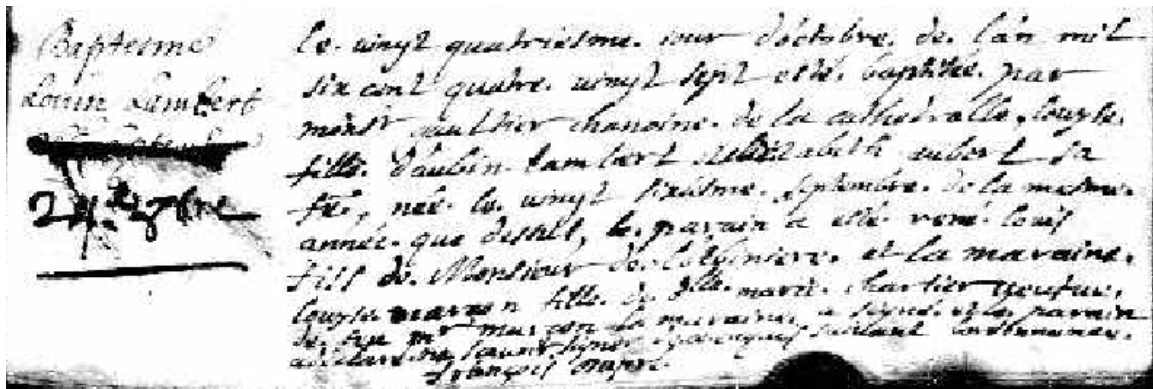 Baptesme
Louise Lambert
24.e 8bre
le vingt quatriesme jour d'octobre de l'an mil
six cent quatre vingt sept a esté baptisée par
monsr gaultier chanoine de la cathedralle, louyse
fille d'aubin lambert et d'Elizabeth aubert sa
fe, née le vingt sixiesme septembre de la mesme
année que dessus, le parain a esté rené louis
fils de Monsieur de Lotbiniere et la maraine
louyse marson fille de marie chartier veufue
de feu mr marson la maraine a signé et le parain
a declaré ne scauoir signer suivant l'ordonnance
françois